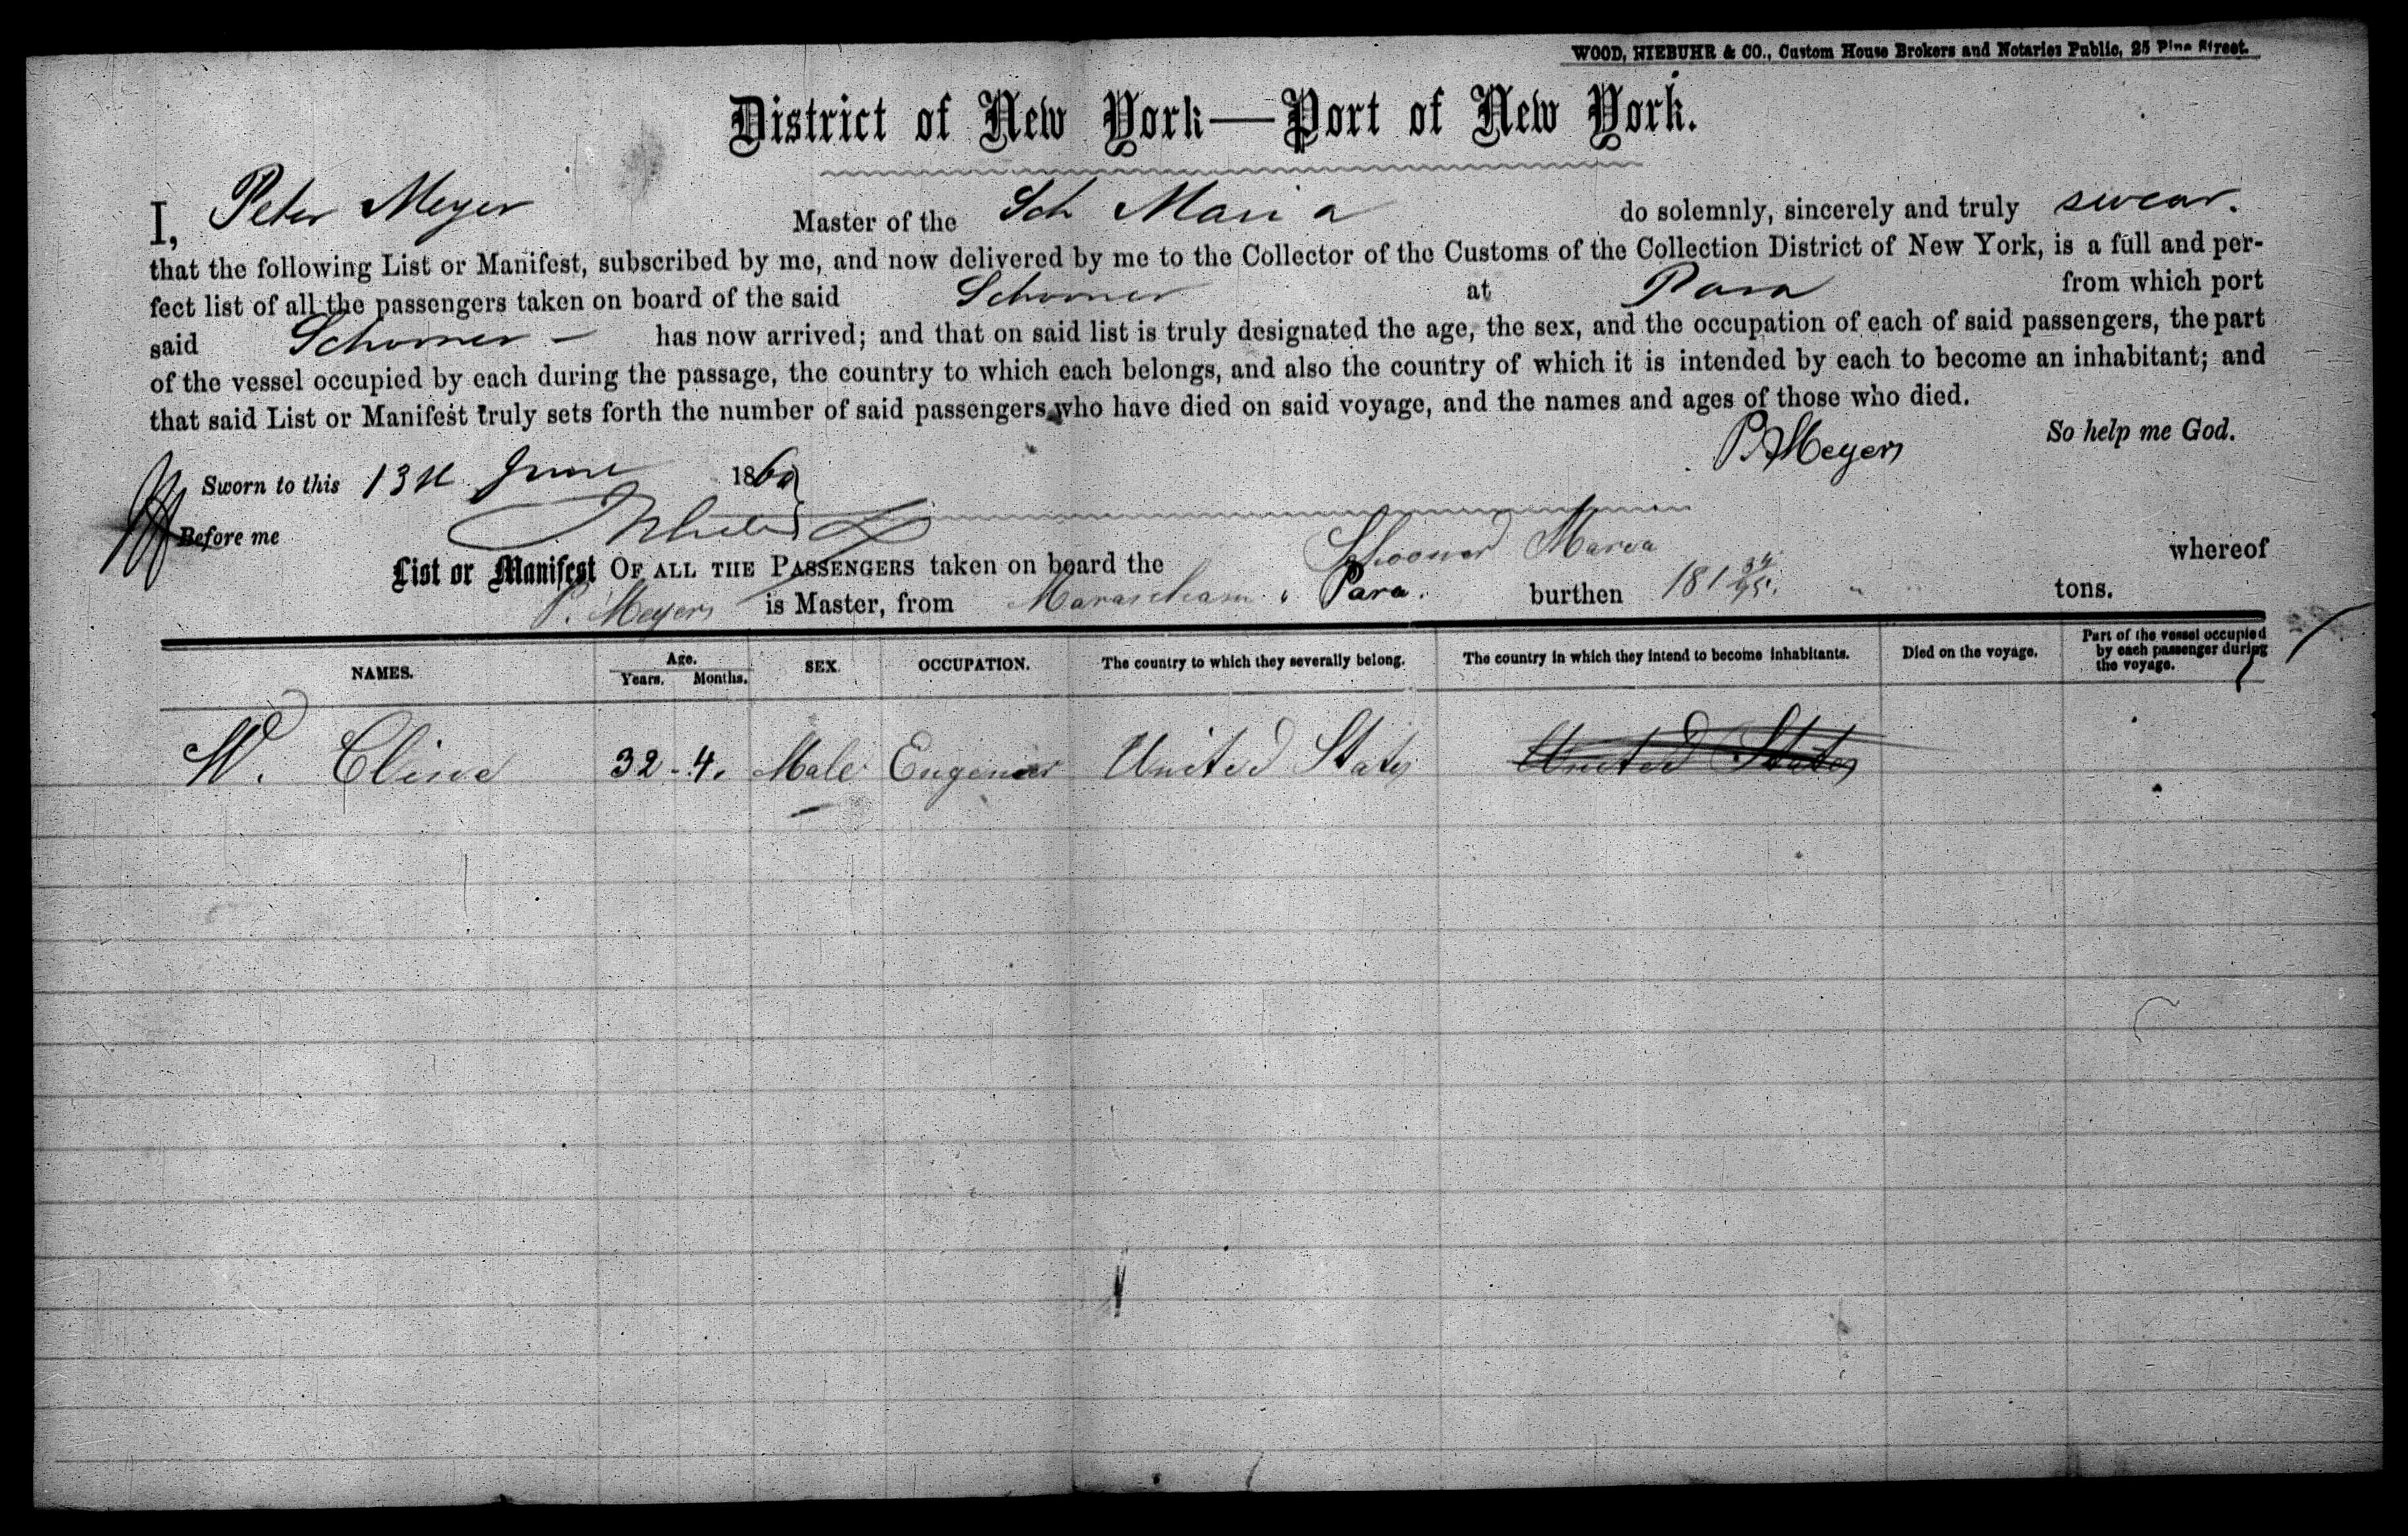 WOOD, NIEBUHR & CO., Custom House Brokers and Notaries Public, 25 Pine Street.
District of New York—Port of New York.
I, Peter Meyer Master of the Sch Maria do solemnly, sincerely and truly swear.
that the following List or Manifest, subscribed by me, and now delivered by me to the Collector of the Customs of the Collection District of New York, is a full and per-
fect list of all the passengers taken on board of the said Schooner at Para from which port
said Schooner – has now arrived; and that on said list is truly designated the age, the sex, and the occupation of each of said passengers, the part
of the vessel occupied by each during the passage, the country to which each belongs, and also the country of which it is intended by each to become an inhabitant; and
that said List or Manifest truly sets forth the number of said passengers who have died on said voyage, and the names and ages of those who died.
P Meyers So help me God.
Sworn to this 13th June 1860
Before me
List or Manifest OF ALL THE PASSENGERS taken on board the Schooner Maria whereof
P. Meyers is Master, from Para. burthen 181 34/95. tons.
NAMES. Age. Years. Months. SEX. OCCUPATION. The country to which they severally belong. The country in which they intend to become inhabitants. Died on the voyage. Part of the vessel occupied by each passenger during the voyage.
W. Cline 32 - 4. Male Engineer United States United States